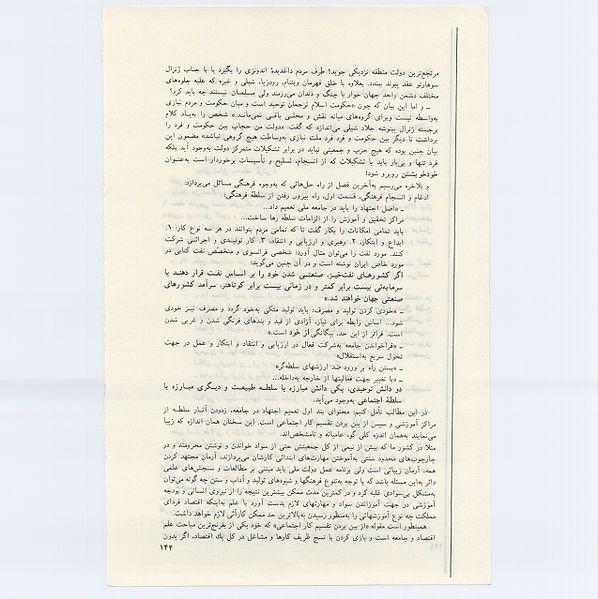 مرتجع‌ترین دولت منطقه نزدیکی جوید؟ طرف مردم داغدیدهٔ اندونزی را بگیرد یا با جناب ژنرال
سوهارتو عقد پیوند ببندد. بعلاوه با خلق قهرمان ویتنام، رودزیا، شیلی و غیره که علیه جلوه‌های
مختلف دشمن واحد جهان خوار با چنگ و دندان می‌رزمند ولی مسلمان نیستند چه باید کرد؟
ـ و اما این بیان که چون «حکومت اسلام ترجمان توحید است و میان حکومت و مردم نیازی
به‌واسطه نیست وبرای گروه‌های میانه نقش و محلی باقی نمی‌ماند.» شخص را به‌یاد کلام
برجسته ژنرال پینوشه جلاد شیلی می‌اندازد که گفت: «دولت من حجاب بین حکومت و فرد را
برداشت تا دیگر بین حکومت و فرد فرد ملت نیازی به‌وساطت هیچ گروهی نباشد» مضمون این
بیان چنین بوده که هیچ حزب و جمعیتی نباید در برابر تشکیلات متمرکز دولت به‌وجود آید بلکه
فرد تنها و بی‌یار باید با تشکیلات که از انسجام، تسلیح و تأسیسات برخوردار است به‌عنوان
خودخویشتن روبرو شود!
و بلاخره می‌رسیم به‌آخرین فصل از راه حل‌هائی که به‌وجوه فرهنگی مسائل می‌پردازد:
ادغام و انسجام فرهنگی، قسمت اول، راه بیرون رفتن از سلطهٔ فرهنگی:
ـ «اصل اجتهاد را باید در جامعه ملی تعمیم داد...
مراکز تحقیق و آموزش را از الزامات سلطه رها ساخت...
باید تمامی امکانات را بکار گفت تا که تمامی مردم بتوانند در هر سه نوع کار، ۱.
ابداع و ابتکار، ۲. رهبری و ارزیابی و انتقاد، ۳. کار تولیدی و اجرائی شرکت
کنند. مورد نفت را می‌توان مثال آورد: شخصی فرانسوی و متخصص نفت کتابی در
مورد خاص ایران نوشته است و در آن چنین می‌گوید:
اگر کشورهای نفت‌خیز، صنعتی شدن خود را بر اساس نفت قرار دهند با
سرمایه‌ئی بیست برابر کمتر و در زمانی بیست برابر کوتاهتر، سرآمد کشورهای
صنعتی جهان خواهند شد.»
ـ «خودی کردن تولید و مصرف: باید تولید متکی به‌خود گردد و مصرف نیز خودی
شود... اساس رابطه برای نیاز، آزادی از قید و بندهای فرنگی شدن و غربی شدن
است. فراتر از این حد، بیگانگی از خود است.»
ـ «فراخواندن جامعه به‌شرکت فعال در ارزیابی و انتقاد و ابتکار و عمل در جهت
تحول سریع به‌استقلال»
ـ «بستن راه بر ورود ضد ارزشهای سلطه‌گر»
ـ «با تغییر جهت فعالیتها از خارج به‌داخله...
دو دانش توحیدی، یکی دانش مبارزه با سلطه طبیعت و دیگری مبارزه با
سلطهٔ اجتماعی به‌وجود می‌آید.
در این مطالب تأمل کنیم: محتوای بند اول تعمیم اجتهاد در جامعه، زدودن آثار سلطه از
مراکز آموزشی و سپس از بین بردن تقسیم کار اجتماعی است. این سخنان همان اندازه که زیبا
می‌نمایند به‌همان اندازه کلی گو، عامیانه و نامشخص‌اند.
مثلا در کشور ما که بیش از نیمی از کل جمعیتش حتی از سواد خواندن و نوشتن محرومند و در
چارچوب‌های محدود سنتی به‌آموختن مهارت‌های ابتدائی کارشان می‌پردازند، آرمان مجتهد کردن
همه، آرمان زیبائی است ولی برنامه عمل دولت ملی باید مبتنی بر مطالعات و سنجش‌های علمی
دائر به‌این مسئله باشد که با توجه به‌تنوع فرهنگها و شیوه‌های تولید و آداب و سنن چه گونه می‌توان
به‌مشکل بی‌سوادی غلبه کرد و در کمترین مدت ممکن بیشترین نتیجه را از نیروی انسانی و بودجه
آموزشی در جهت آموزاندن سواد و مهارتهای لازم بدست آورد با علم به‌اینکه اقتصاد فردای
مملکت چه نوع آموزشهائی را به‌منظور رسیدن به‌بالاترین حد ممکن کارآئی لازم خواهد داشت.
همینطور است مقوله «از بین بردن تقسیم کار اجتماعی» که خود یکی از بغرنج‌ترین مباحث علم
اقتصاد و جامعه است و بازی کردن با نسج ظریف کارها و مشاغل در کل یك اقتصاد، اگر بدون
۱۴۲